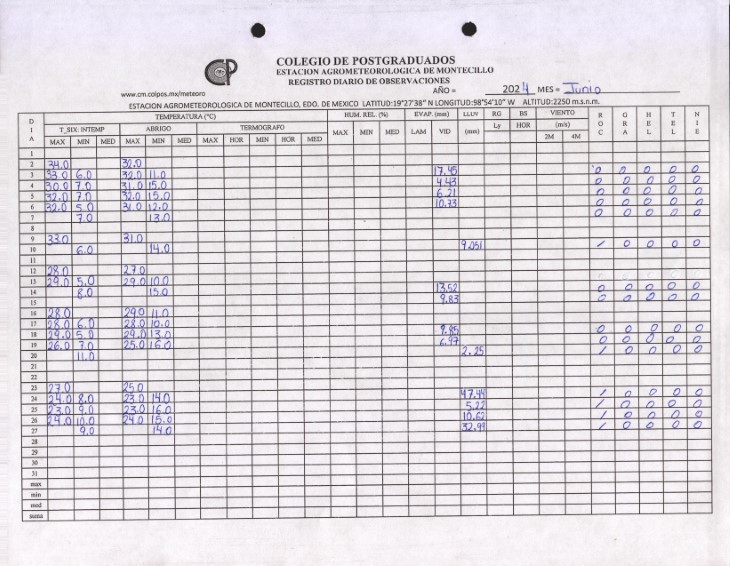 COLEGIO DE POSTGRADUADOS
ESTACION AGROMETEOROLOGICA DE MONTECILLO
REGISTRO DIARIO DE OBSERVACIONES
www.cm.colpos.mx/meteoro AÑO = 2024 MES = Junio
ESTACION AGROMETEOROLOGICA DE MONTECILLO, EDO. DE MEXICO LATITUD:19°27'38" N LONGITUD:98°54'10" W ALTITUD:2250 m.s.n.m.
DIA TEMPERATURA (°C) HUM. REL. (%) EVAP. (mm) LLUV RG BS VIENTO ROC GRA HEL TEL NIE
T_SIX: INTEMP ABRIGO TERMOGRAFO MAX MIN MED LAM VID (mm) Ly HOR (m/s)
MAX MIN MAX MIN MED MAX HOR MIN HOR MED 2M 4M
1
2 34.0 32.0
3 33.0 6.0 32.0 11.0 17.45 0 0 0 0 0
4 30.0 7.0 31.0 15.0 4.43 0 0 0 0 0
5 32.0 7.0 32.0 15.0 6.21 0 0 0 0 0
6 32.0 5.0 31.0 12.0 10.73 0 0 0 0 0
7 7.0 13.0 0 0 0 0 0
8
9 33.0 31.0
10 6.0 14.0 9.051 1 0 0 0 0
11
12 28.0 27.0
13 29.0 5.0 29.0 10.0 13.52 0 0 0 0 0
14 8.0 15.0 9.83 0 0 0 0 0
15
16 28.0 29.0 11.0
17 28.0 6.0 28.0 10.0 9.85 0 0 0 0 0
18 29.0 5.0 29.0 13.0 6.97 0 0 0 0 0
19 26.0 7.0 25.0 16.0
20 11.0 2.25 1 0 0 0 0
21
22
23 27.0 25.0
24 24.0 8.0 23.0 14.0 47.44 1 0 0 0 0
25 23.0 9.0 23.0 16.0 5.22 1 0 0 0 0
26 24.0 10.0 24.0 15.0 10.62 1 0 0 0 0
27 9.0 14.0 32.99 1 0 0 0 0
28
29
30
31
max
min
med
suma